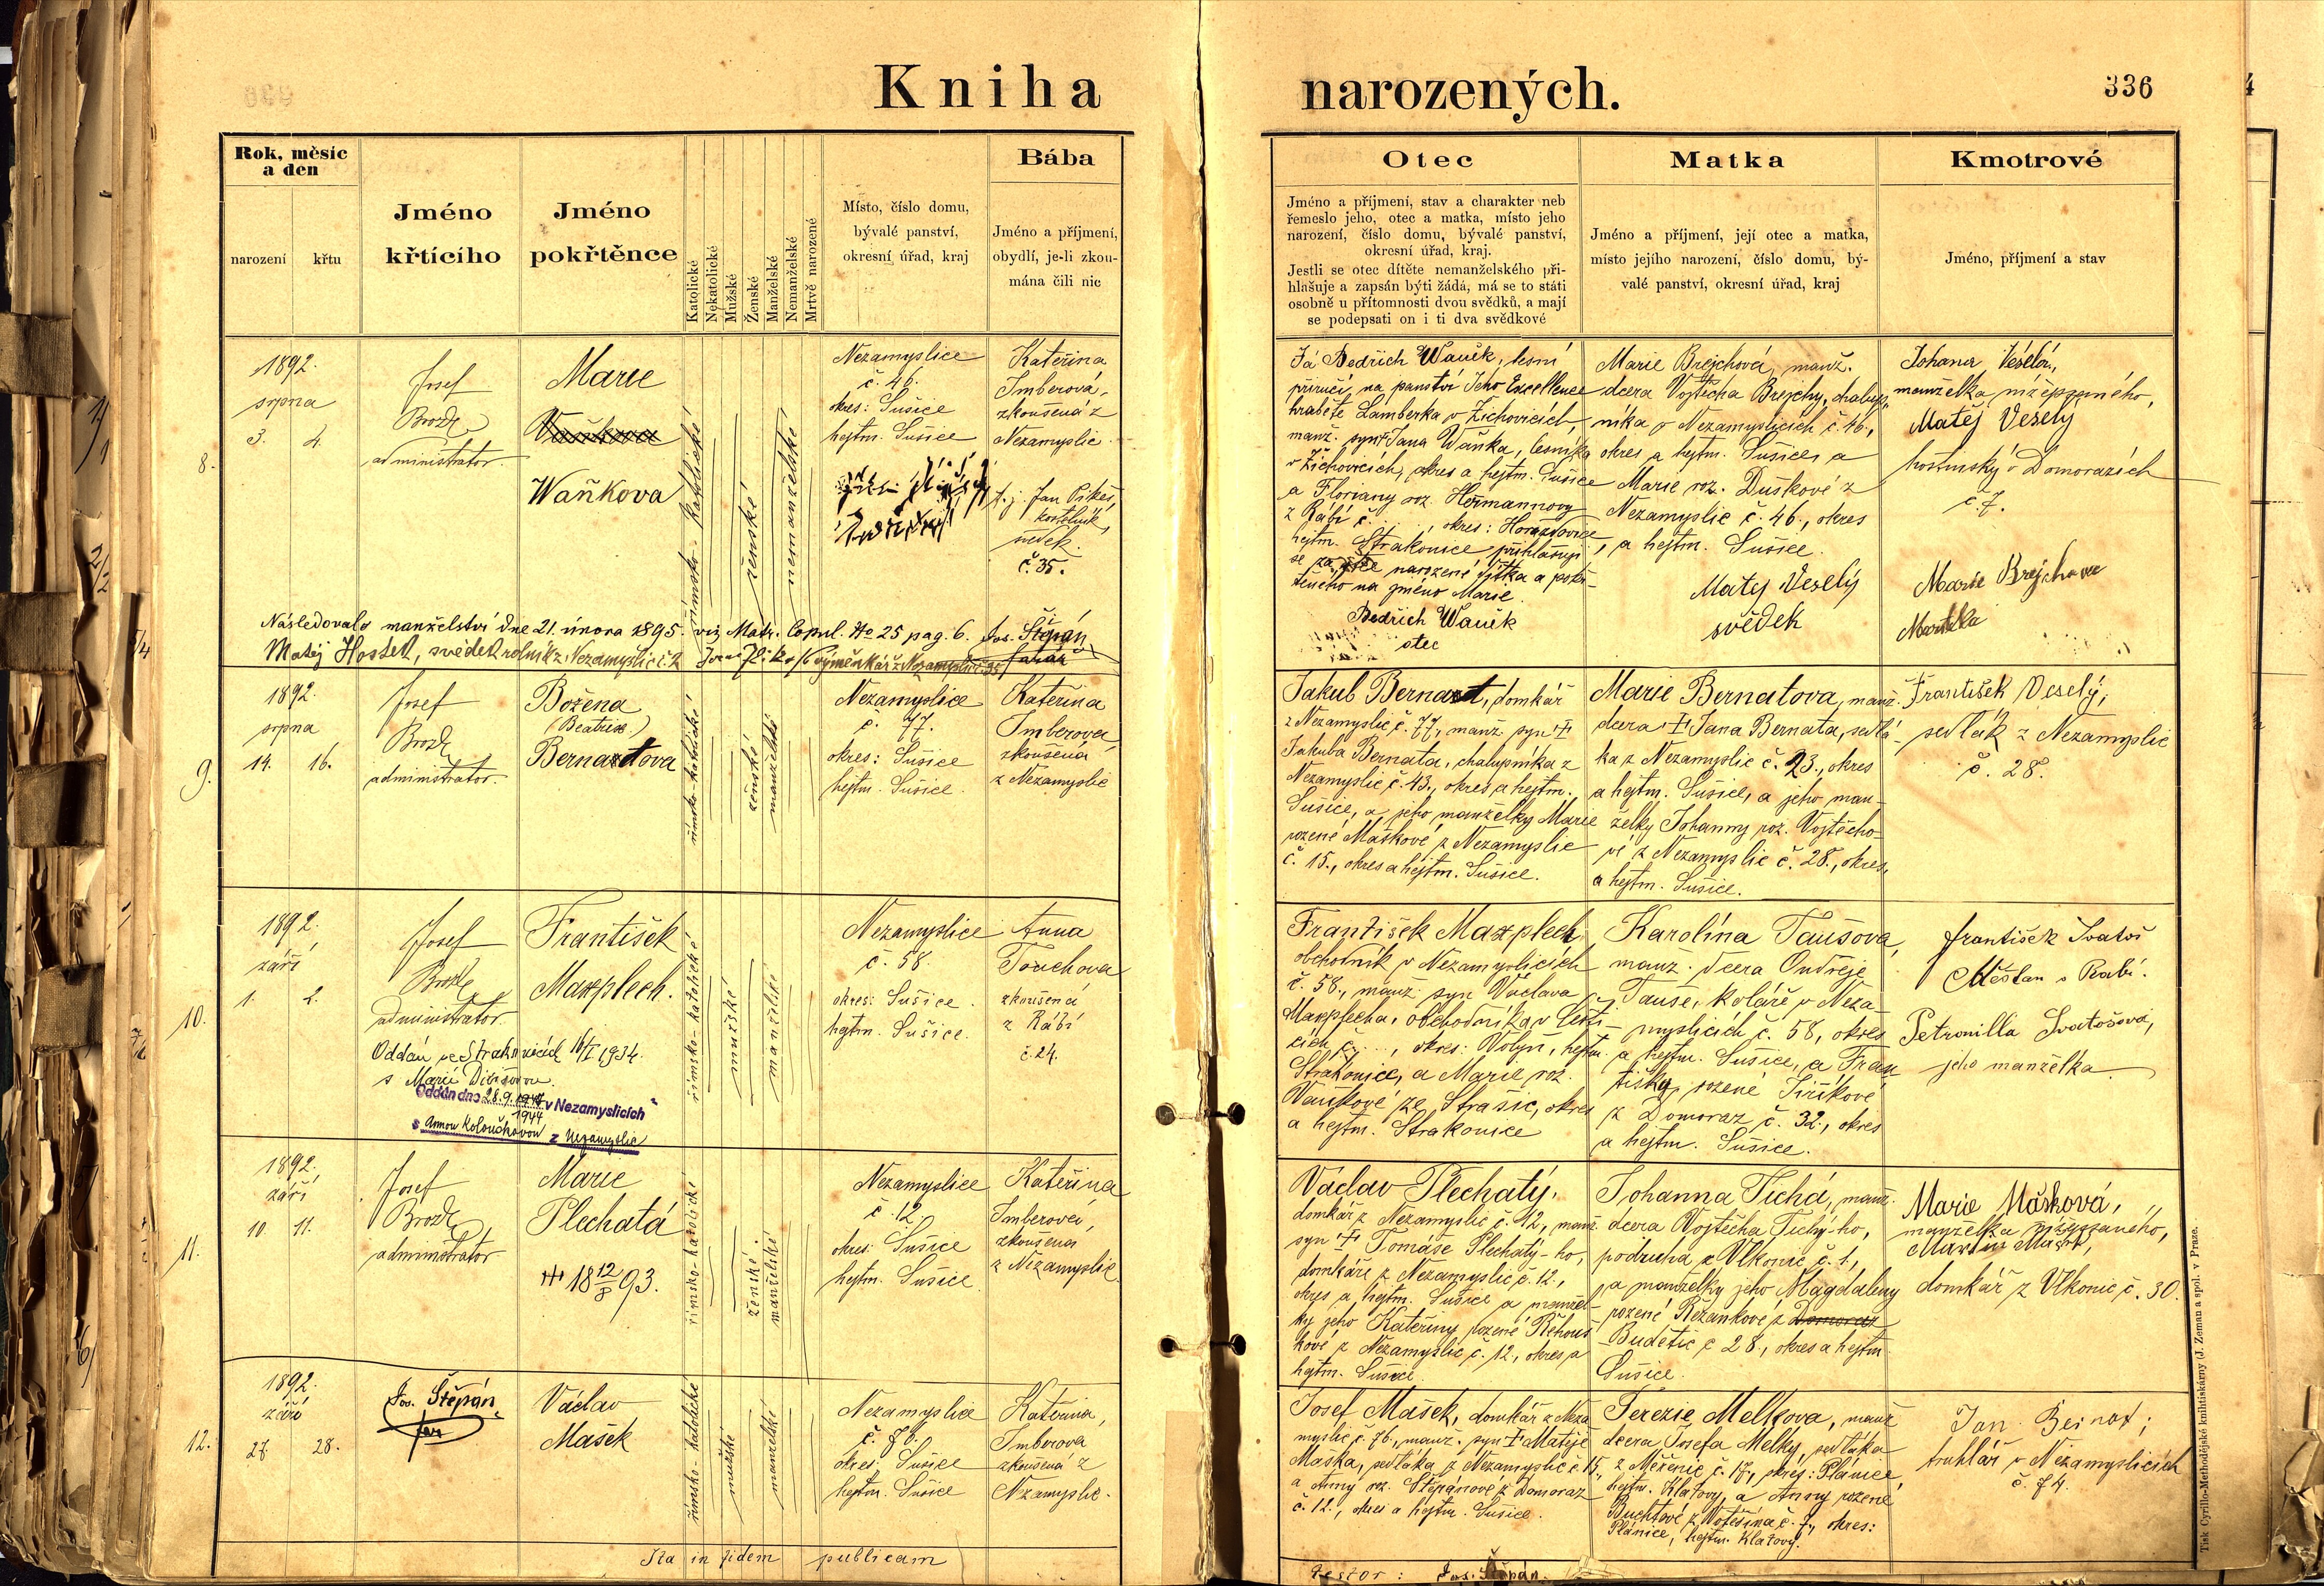 Kniha narozených.
336
Rok, měsíc
a den
narození
křtu
Jméno
křtícího
Jméno
pokřtěnce
Katolické
Nekatolické
Mužské
Ženské
Manželské
Nemanželské
Mrtvě narozené
Místo, číslo domu,
bývalé panství,
okresní úřad, kraj
Bába
Jméno a příjmení,
obydlí, je-li zkou-
mána čili nic
Otec
Jméno a příjmení, stav a charakter neb
řemeslo jeho, otec a matka, místo jeho
narození, číslo domu, bývalé panství,
okresní úřad, kraj.
Jestli se otec dítěte nemanželského při-
hlašuje a zapsán býti žádá, má se to státi
osobně u přítomnosti dvou svědků, a mají
se podepsati on i ti dva svědkové
Matka
Jméno a příjmení, její otec a matka,
místo jejího narození, číslo domu, bý-
valé panství, okresní úřad, kraj
Kmotrové
Jméno, příjmení a stav
8.
1892.
srpna
3. 4.
Josef
Brožk
administrator.
Marie
Waňkova
římsko-katolické
ženské
nemanželské
Nezamyslice
č. 46.
okres: Sušice
hejtm. Sušice
Kateřina
Imberová,
zkoušená z
Nezamyslic.
Jan Pikeš,
kostelník,
svědek.
č. 35.
Já Bedřich Waněk, lesní
příručí na panství Jeho Excellence
hraběte Lamberka v Žichovicích,
manž. syn Jana Waňka, lesníka
v Žichovicích, okres a hejtm. Sušice
a Floriany roz. Heřmannovy
z Rábí č. , okres: Horažďovice
hejtm. Strakonice, přihlašuji
se za otce narozené dítka a pokř-
těného na jméno Marie.
Bedřich Waněk
otec
Marie Brejchová, manž.
dcera Vojtěcha Brejchy, chalup-
níka v Nezamyslicích č. 46,
okres a hejtm. Sušice, a
Marie roz. Duškové z
Nezamyslic č. 46., okres
a hejtm. Sušice.
Matěj Veselý
svědek
Johana Veselá,
manželka níže psaného,
Matěj Veselý
hostinský v Domoražích
č. 7.
Marie Brejchova
Matka
Následovalo manželství dne 21. února 1895. viz Matr. Copul. No 25 pag. 6. Jos. Štěpán,
farář
Matěj Hostek, svědek rolník z Nezamyslic č. 2
9.
1892.
srpna
14. 16.
Josef
Brožk
administrator.
Božena
(Beatrix)
Bernardova
římsko-katolické
ženské
manželské
Nezamyslice
č. 77.
okres: Sušice
hejtm. Sušice.
Kateřina
Imberova
zkoušená
z Nezamyslic
Jakub Bernard, domkář
z Nezamyslic č. 77., manž. syn †
Jakuba Bernata, chalupníka z
Nezamyslic č. 43., okres a hejtm.
Sušice, a jeho manželky Marie
rozené Maškové z Nezamyslic
č. 15., okres a hejtm. Sušice.
Marie Bernatova, manž.
dcera † Jana Bernata, sedlá-
ka z Nezamyslic č. 23., okres
a hejtm. Sušice, a jeho man-
želky Johanny roz. Vojtěcho-
vé z Nezamyslic č. 28., okres
a hejtm. Sušice.
František Veselý,
sedlák z Nezamyslic
č. 28.
10.
1892.
září
1. 2.
Josef
Brožk
administrator.
František
Maxplech.
Oddán ve Strakonicích 16/I 1934.
s Marií
Oddán dne 28.9.1944 v Nezamyslicích
1944
s Annou Koloučkovou z Nezamyslic
římsko-katolické
mužské
manželské
Nezamyslice
č. 58.
okres: Sušice.
hejtm. Sušice.
Anna
Touchova
zkoušená
z Rábí
č. 24.
František Maxplech
obchodník v Nezamyslicích
č. 58., manž. syn Václava
Maxplecha, obchodníka v Češti-
cích č. , okres: Volyň, hejtm.
Strakonice, a Marie roz.
Vaňkové ze Strašic, okres
a hejtm. Strakonice
Karolína Taušova,
manž. dcera Ondřeje
Tauše, koláře v Neza-
myslicích č. 58, okres
a hejtm. Sušice, a Fran-
tišky, rozené Jiříkové
z Domoraz č. 32., okres
a hejtm. Sušice.
František Svatoš
Měšťan v Rabí.
Petronilla Svatošová,
jeho manželka
11.
1892.
září
10. 11.
Josef
Brožk,
administrator
Marie
Plechatá
††† 18 12/8 93.
římsko-katolické
ženské.
manželské
Nezamyslice
č. 12.
okres: Sušice
hejtm. Sušice.
Kateřina
Imberová,
zkoušená
z Nezamyslic.
Václav Plechatý,
domkář z Nezamyslic č. 12, manž.
syn † Tomáše Plechatý-ho,
domkáře z Nezamyslic č. 12.,
okres a hejtm. Sušice a manžel-
ky jeho Kateřiny, rozené Řehouš-
kové z Nezamyslic č. 12., okres a
hejtm. Sušice.
Johanna Tichá, manž.
dcera Vojtěcha Tichý-ho,
podruha z Vlkonic č. 1,
a manželky jeho Magdaleny
rozené Řežankové z Domoraz
Budětic č 28., okres a hejtm
Sušice.
Marie Mašková,
manželka níže psaného,
domkář z Vlkonic č. 30.
12.
1892.
září
27. 28.
Jos. Štěpán,
far
Václav
Mašek
římsko-katolické
mužské
manželské
Nezamyslice
č. 76.
okres: Sušice
hejtm. Sušice
Kateřina,
Imberova
zkoušená z
Nezamyslic.
Josef Mašek, domkář z Neza-
myslic č. 76., manž. syn † Matěje
Maška, sedláka z Nezamyslic č. 15.,
a Anny roz. Štěpánové z Domoraz
č. 12., okres a hejtm. Sušice.
Terezie Melkova, manž
dcera Josefa Melky, sedláka
z Měčenic č. 17., okres: Plánice
hejtm. Klatovy, a Anny rozené
Buchtové z č. 7., okres:
Plánice, hejtm. Klatovy.
Jan Bernat;
truhlář v Nezamyslicích
č. 74.
Ita in fidem publicam
testor: Jos. Štěpán.
Tisk Cyrillo-Methodějské knihtiskárny (J. Zeman a spol. v Praze.